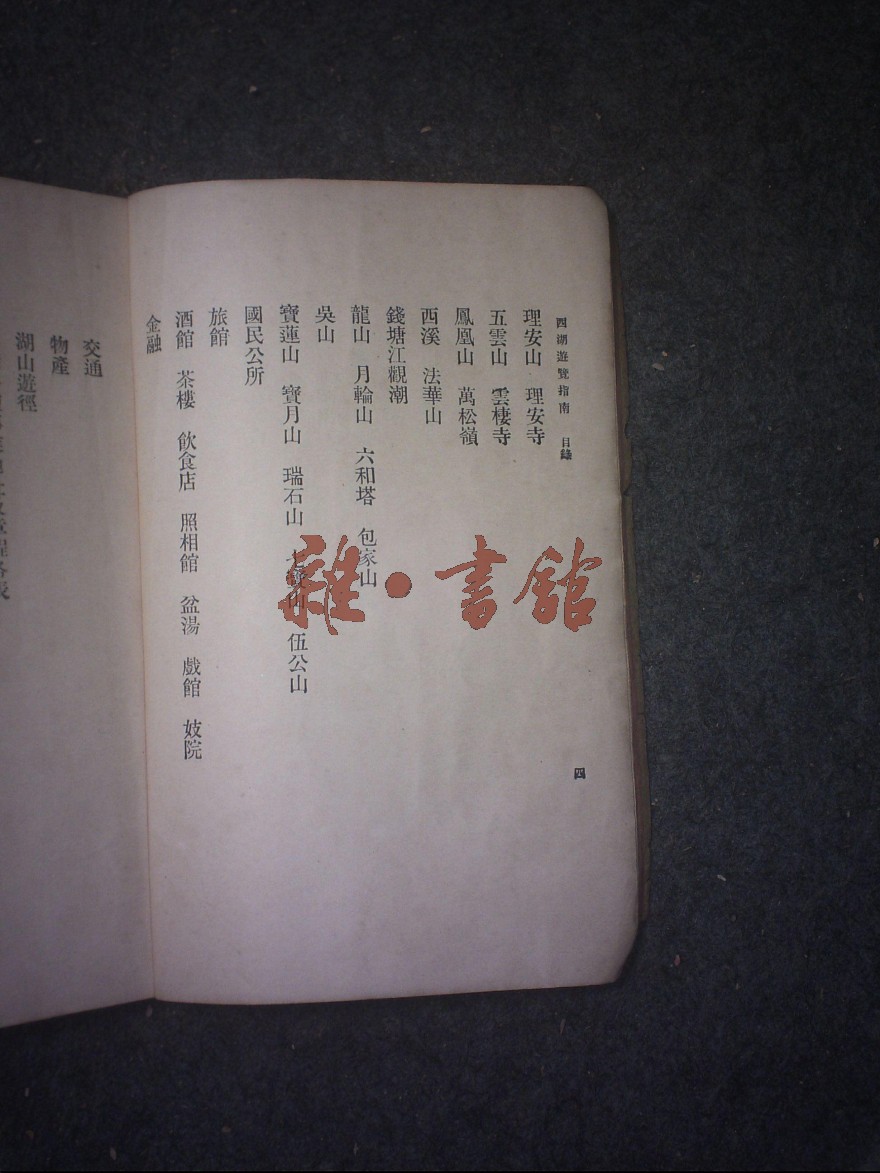 西湖遊覽指南　目錄
四
理安山　理安寺
五雲山　雲棲寺
鳳凰山　萬松嶺
西溪　法華山
錢塘江觀潮
龍山　月輪山　六和塔　包家山
吳山
寶蓮山　寶月山　瑞石山　山　伍公山
國民公所
旅館
酒館　茶樓　飲食店　照相館　盆湯　戲館　妓院
金融
交通
物產
湖山遊徑
雜·書館